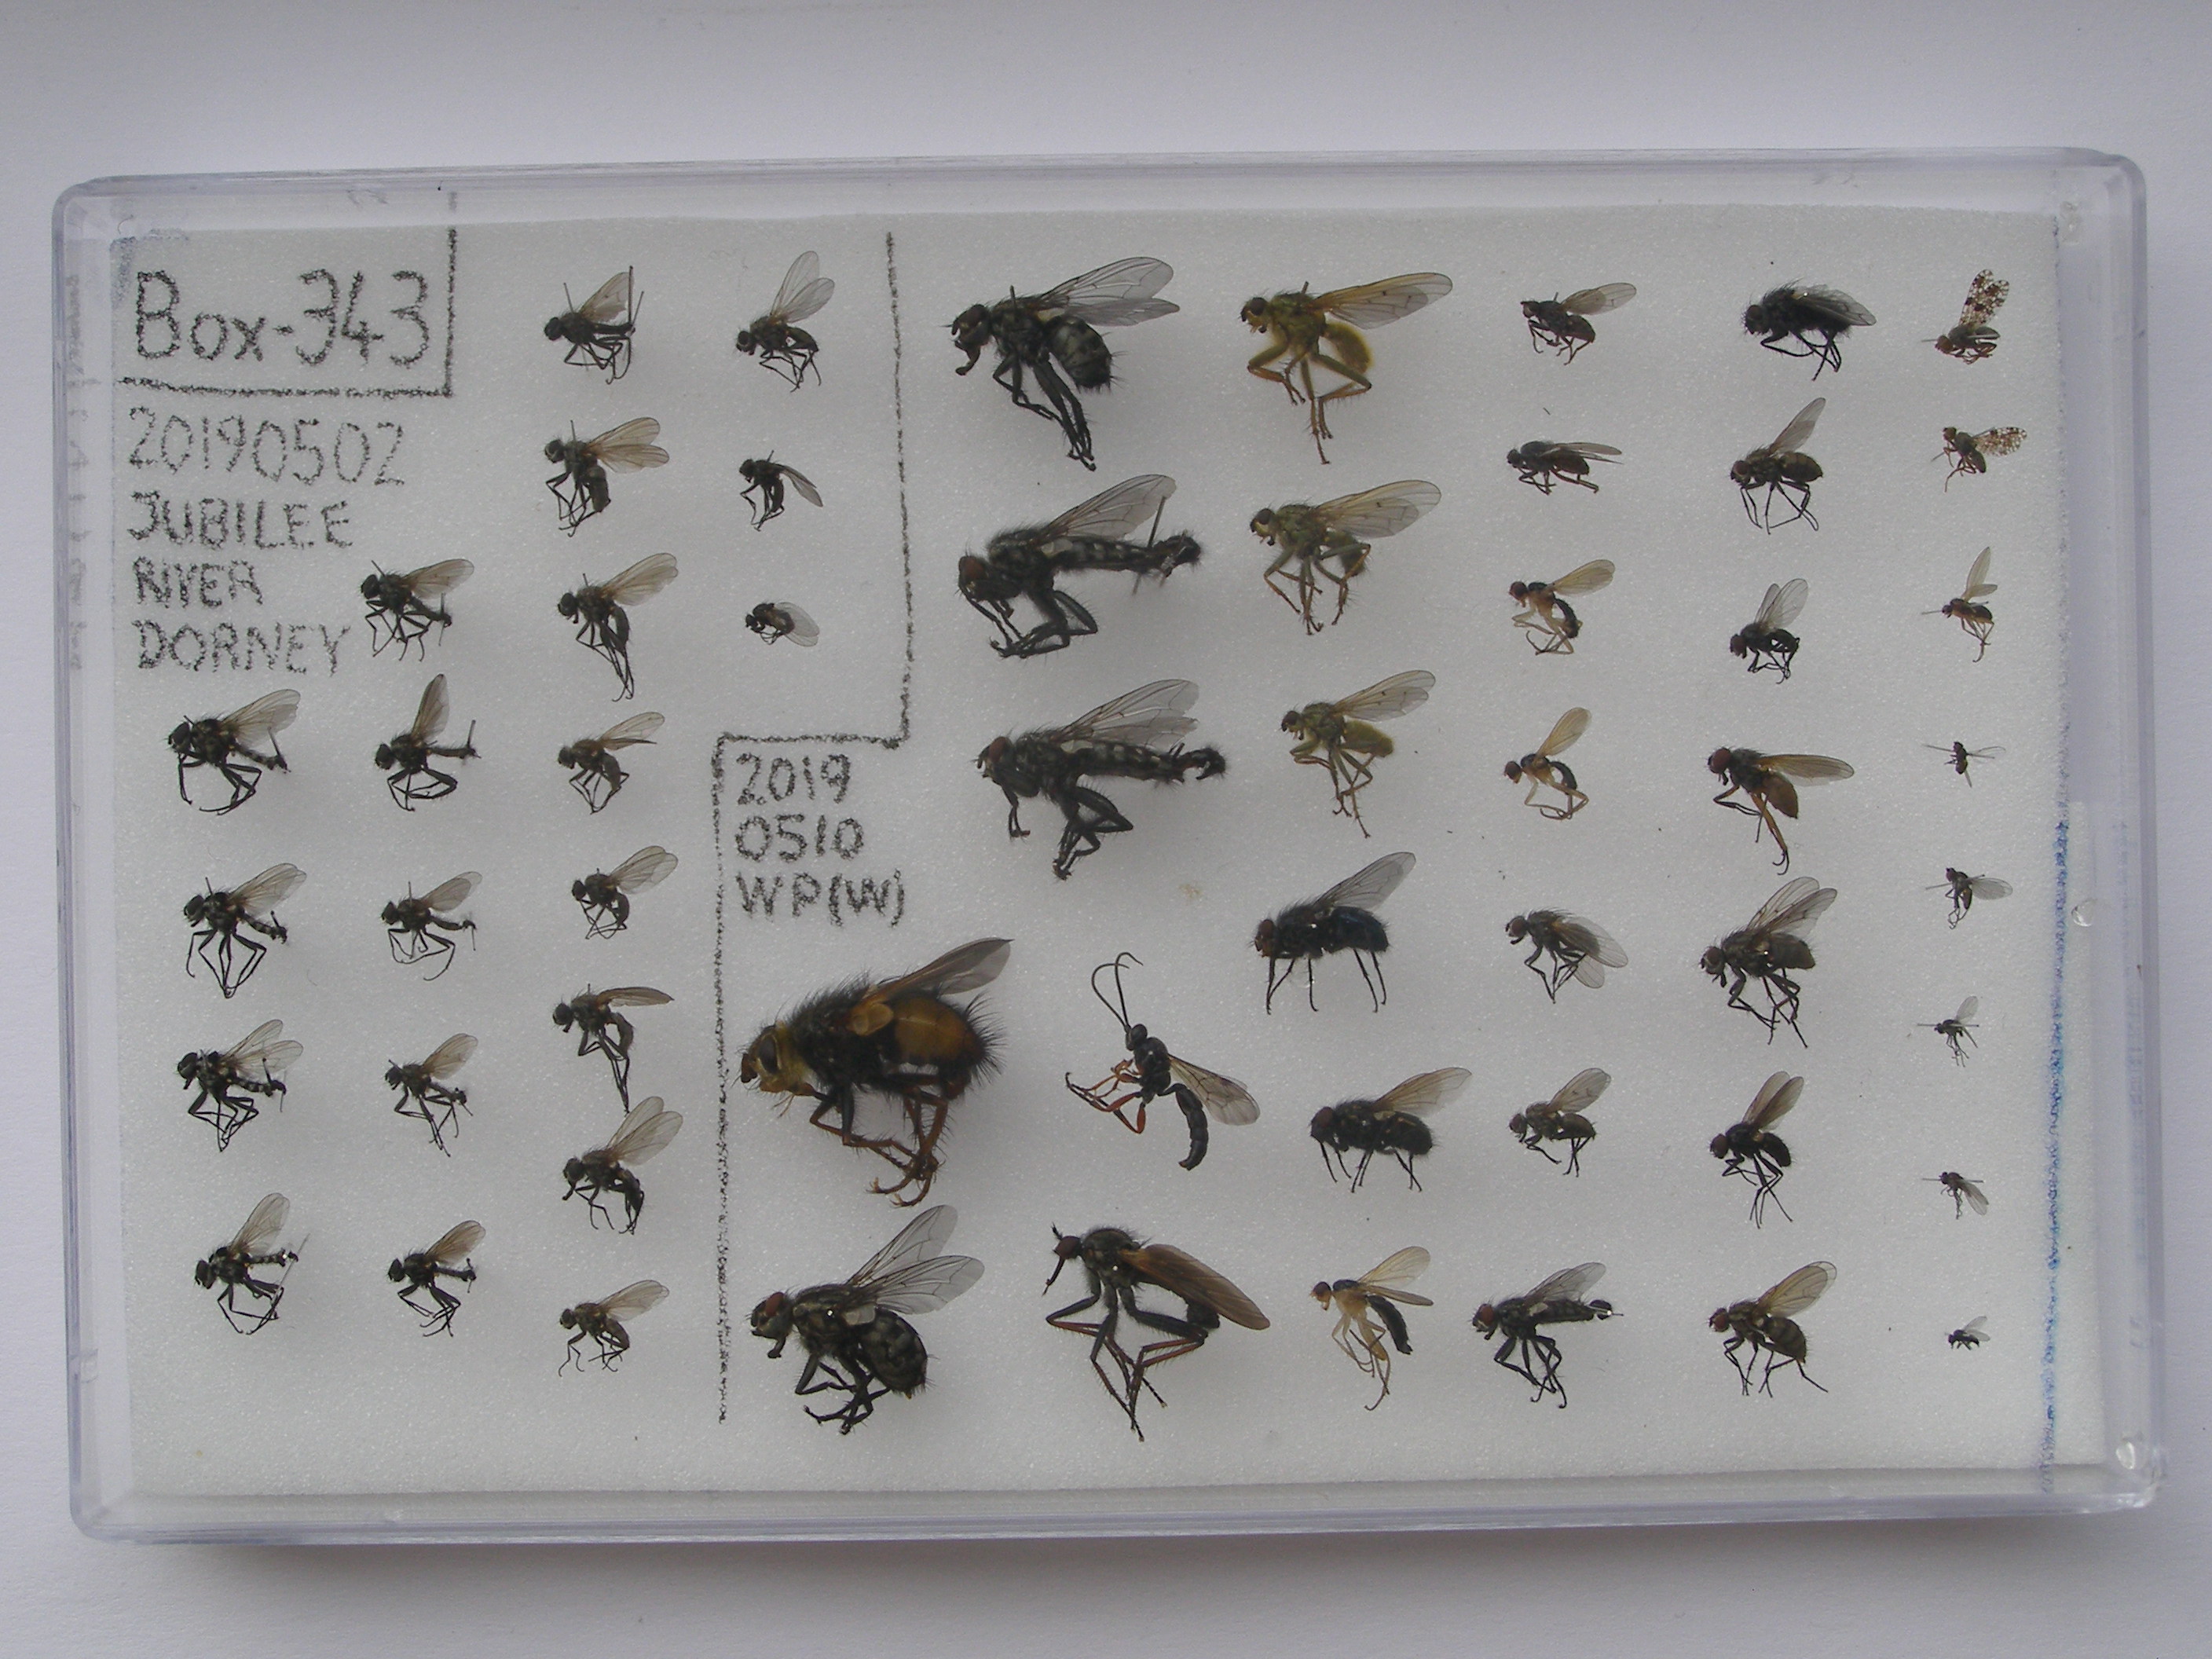 Box-343
20190502
JUBILEE
RIVER
DORNEY
2019
0510
WP(W)